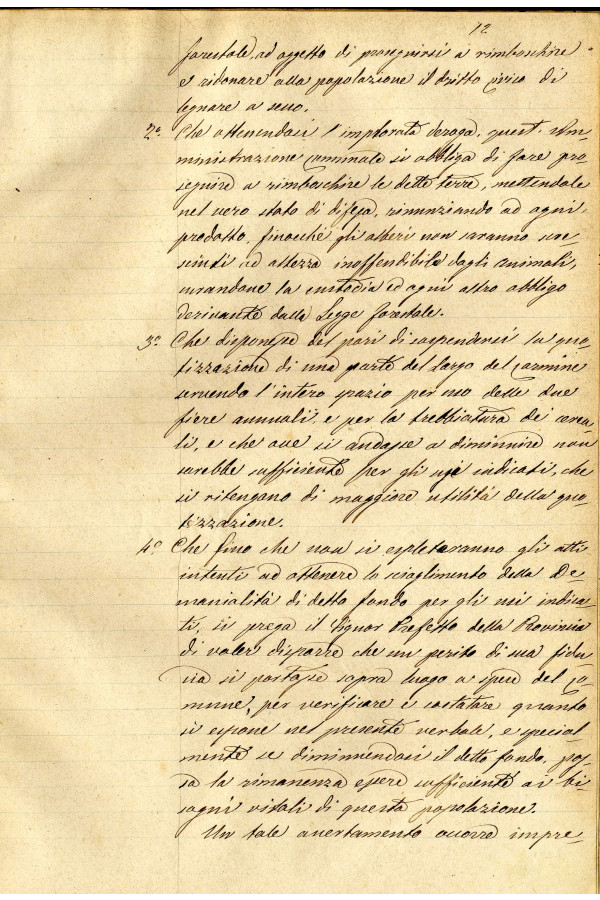 12
forestale, ad oggetto di proseguirsi a rimboschire
e ridonare alla popolazione il dritto civico di
legnare a secco.
2º Che ottenendosi l'implorata deroga, quest'Am-
ministrazione Comunale si obbliga di fare pro-
seguire a rimboschire le dette terre, mettendole
nel vero stato di difesa, rinunziando ad ogni
prodotto, finocchè gli alberi non saranno cre-
sciuti ad altezza inoffendibile dagli animali,
curandone la custodia ed ogni altro obbligo
derivante dalla Legge forestale.
3º Che disponesse del pari di sospendersi la quo-
tizzazione di una parte del Largo del Carmine
servendo l'intero spazio per uso delle due
fiere annuali, e per la trebbiatura dei cerea-
li, e che ove si andasse a diminuire non
sarebbe sufficiente per gli usi indicati, che
si ritengano di maggiore utilità della quo-
tizzazione.
4º Che fino che non si espleteranno gli atti
intenti ad ottenere lo scioglimento della De-
manialità di detto fondo per gli usi indica-
ti, si prega il Signor Prefetto della Provincia
di voler disporre che un perito di sua fidu-
cia si portasse sopra luogo a spese del Co-
mune, per verificare e costatare quanto
si espone nel presente verbale, e special-
mente se diminuendosi il detto fondo, pos-
sa la rimanenza essere sufficiente ai bi-
sogni vitali di questa popolazione.
Un tale accertamento occorre impre-